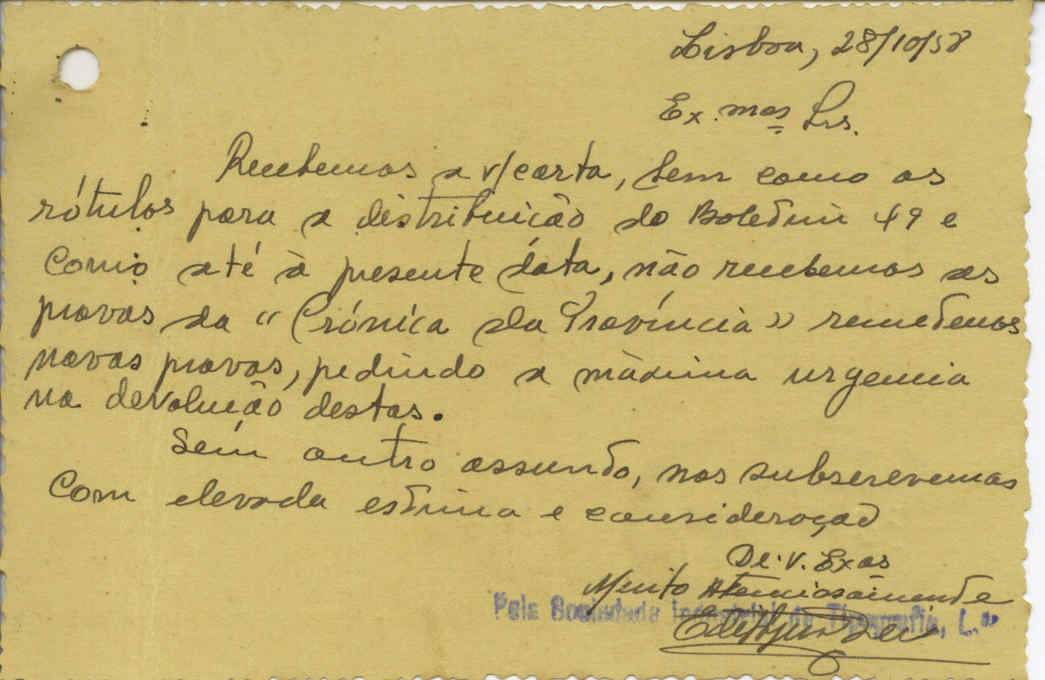 Lisboa, 28/10/58
Ex.mos Srs.
Recebemos a v/carta, bem como os
rótulos para a distribuição do Boletim 49 e
como até à presente dáta, não recebemos as
provas da "Crónica da Província" remetemos
novas provas, pedindo a máxima urgencia
na devolução destas.
Sem outro assunto, nos subscrevemos
Com elevada estima e consideração
De V. Exas
Muito Atenciosamente
Pela Sociedade Industrial de Tipografia, L.da